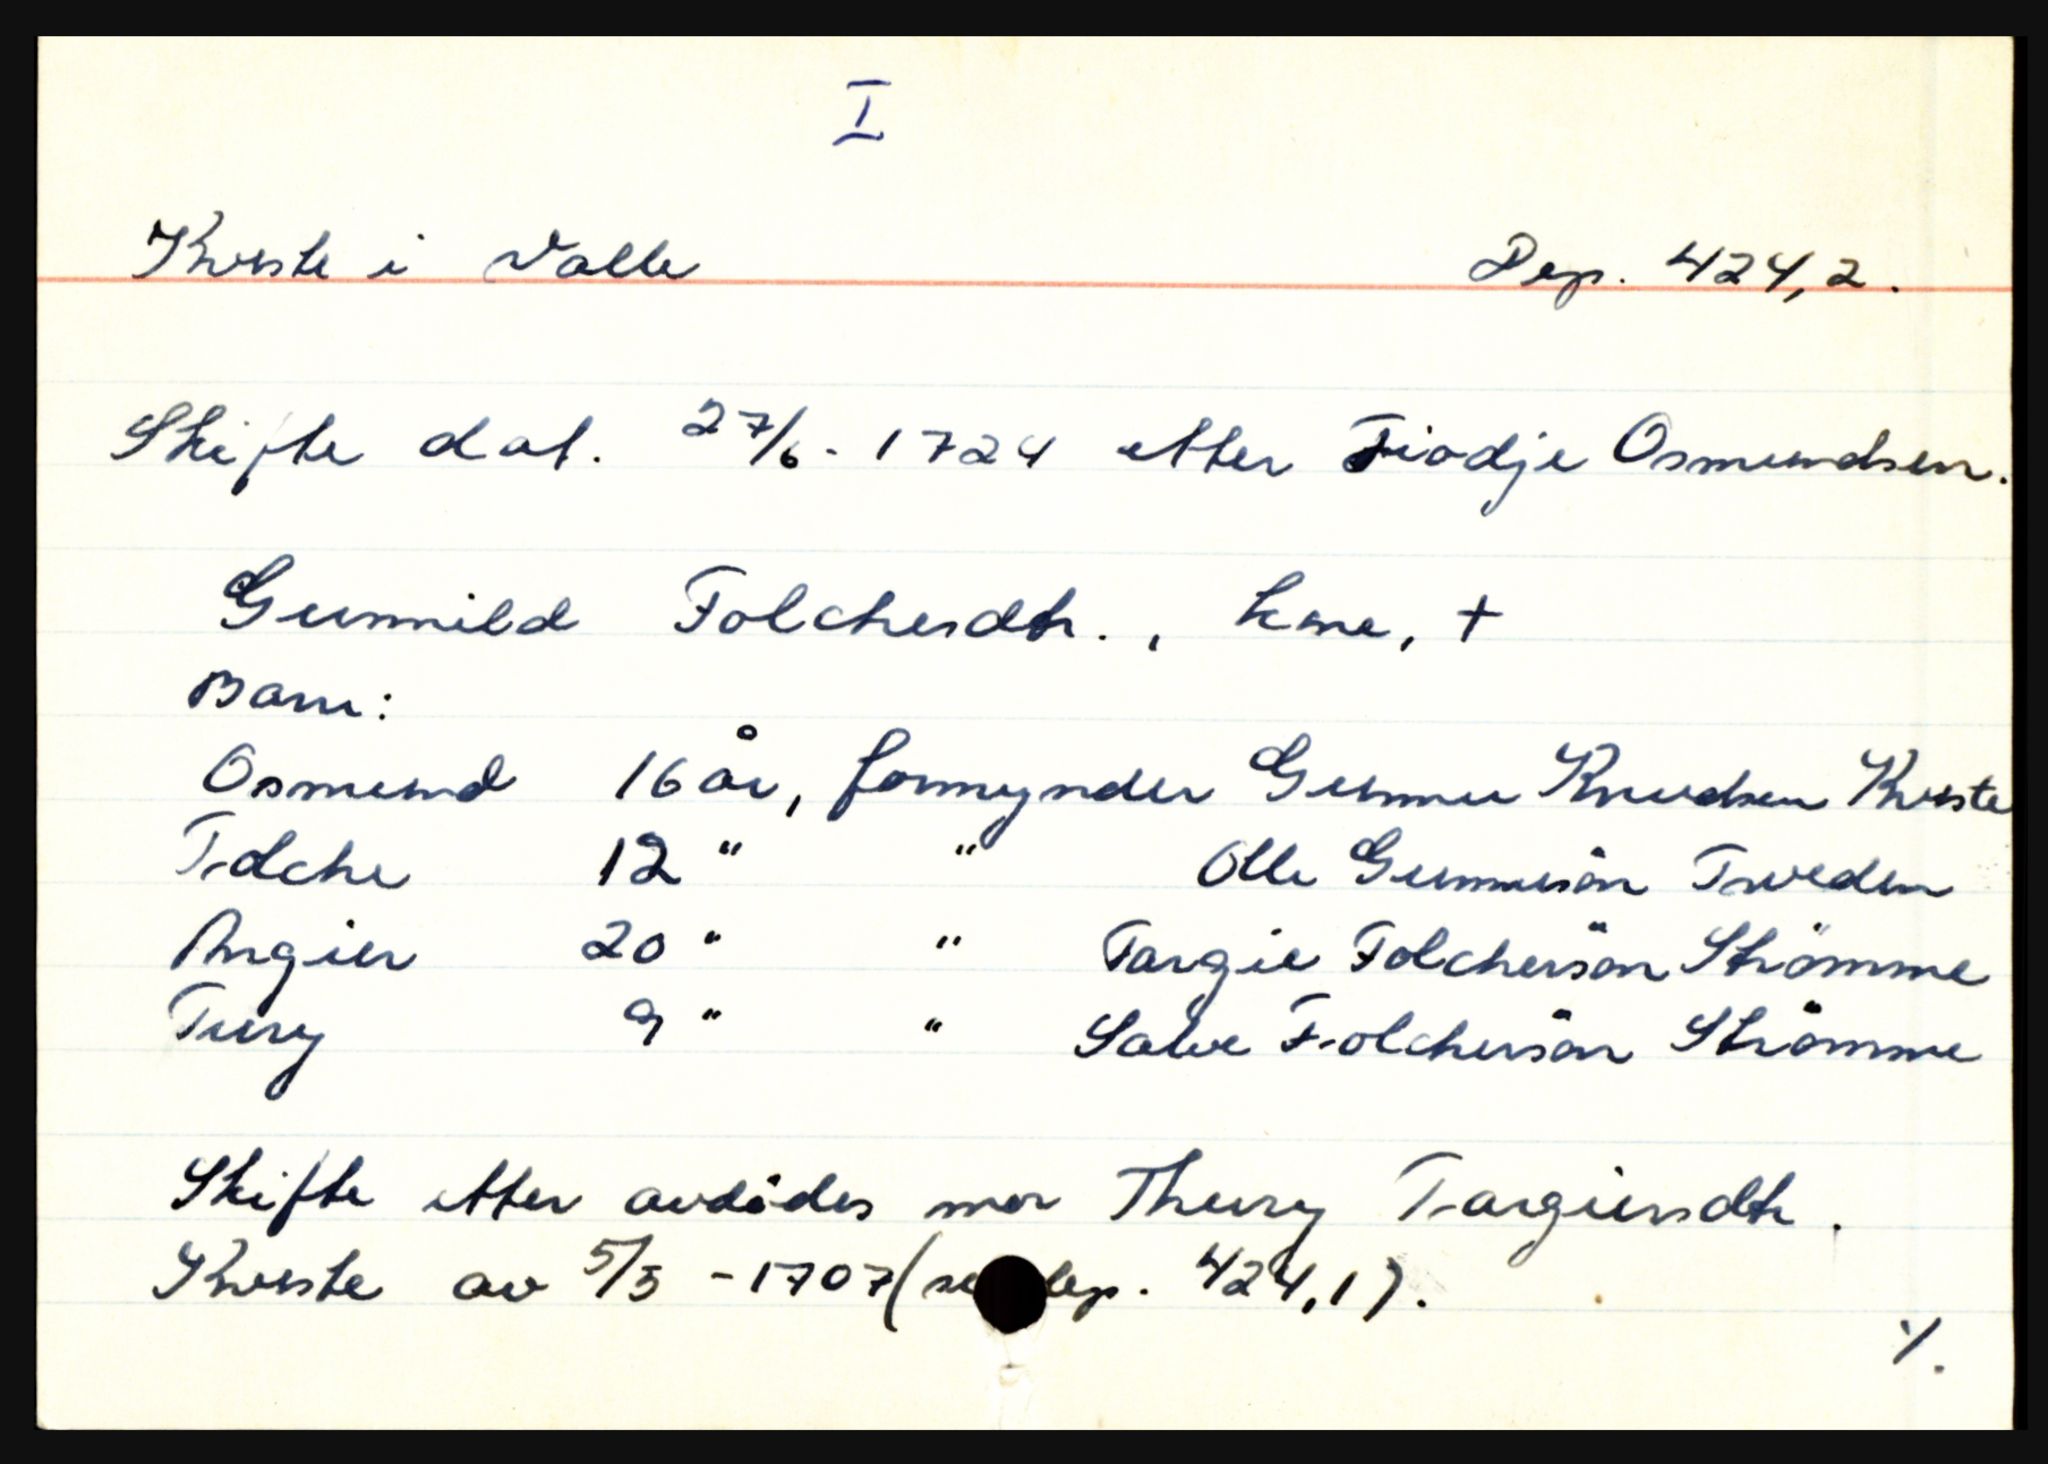 I
Kveste i Valle Dep. 424,2.
Skifte dat. 27/6 - 1724 etter Fiodje Osmundsen.
Gunnild Folchesdtr., kone, +
Barn:
Osmund 16 år, formynder Gunnu Knudsen Kveste
Folche 12 " " Olle Gunnusön Tveden
Angier 20 " " Targie Folchersön Strömme
Tury 9 " " Salve Folchersön Strömme
Skifte etter avdødes mor Thury Targiersdtr.
Kveste av 5/5 - 1707 (se dep. 424,1).
%.